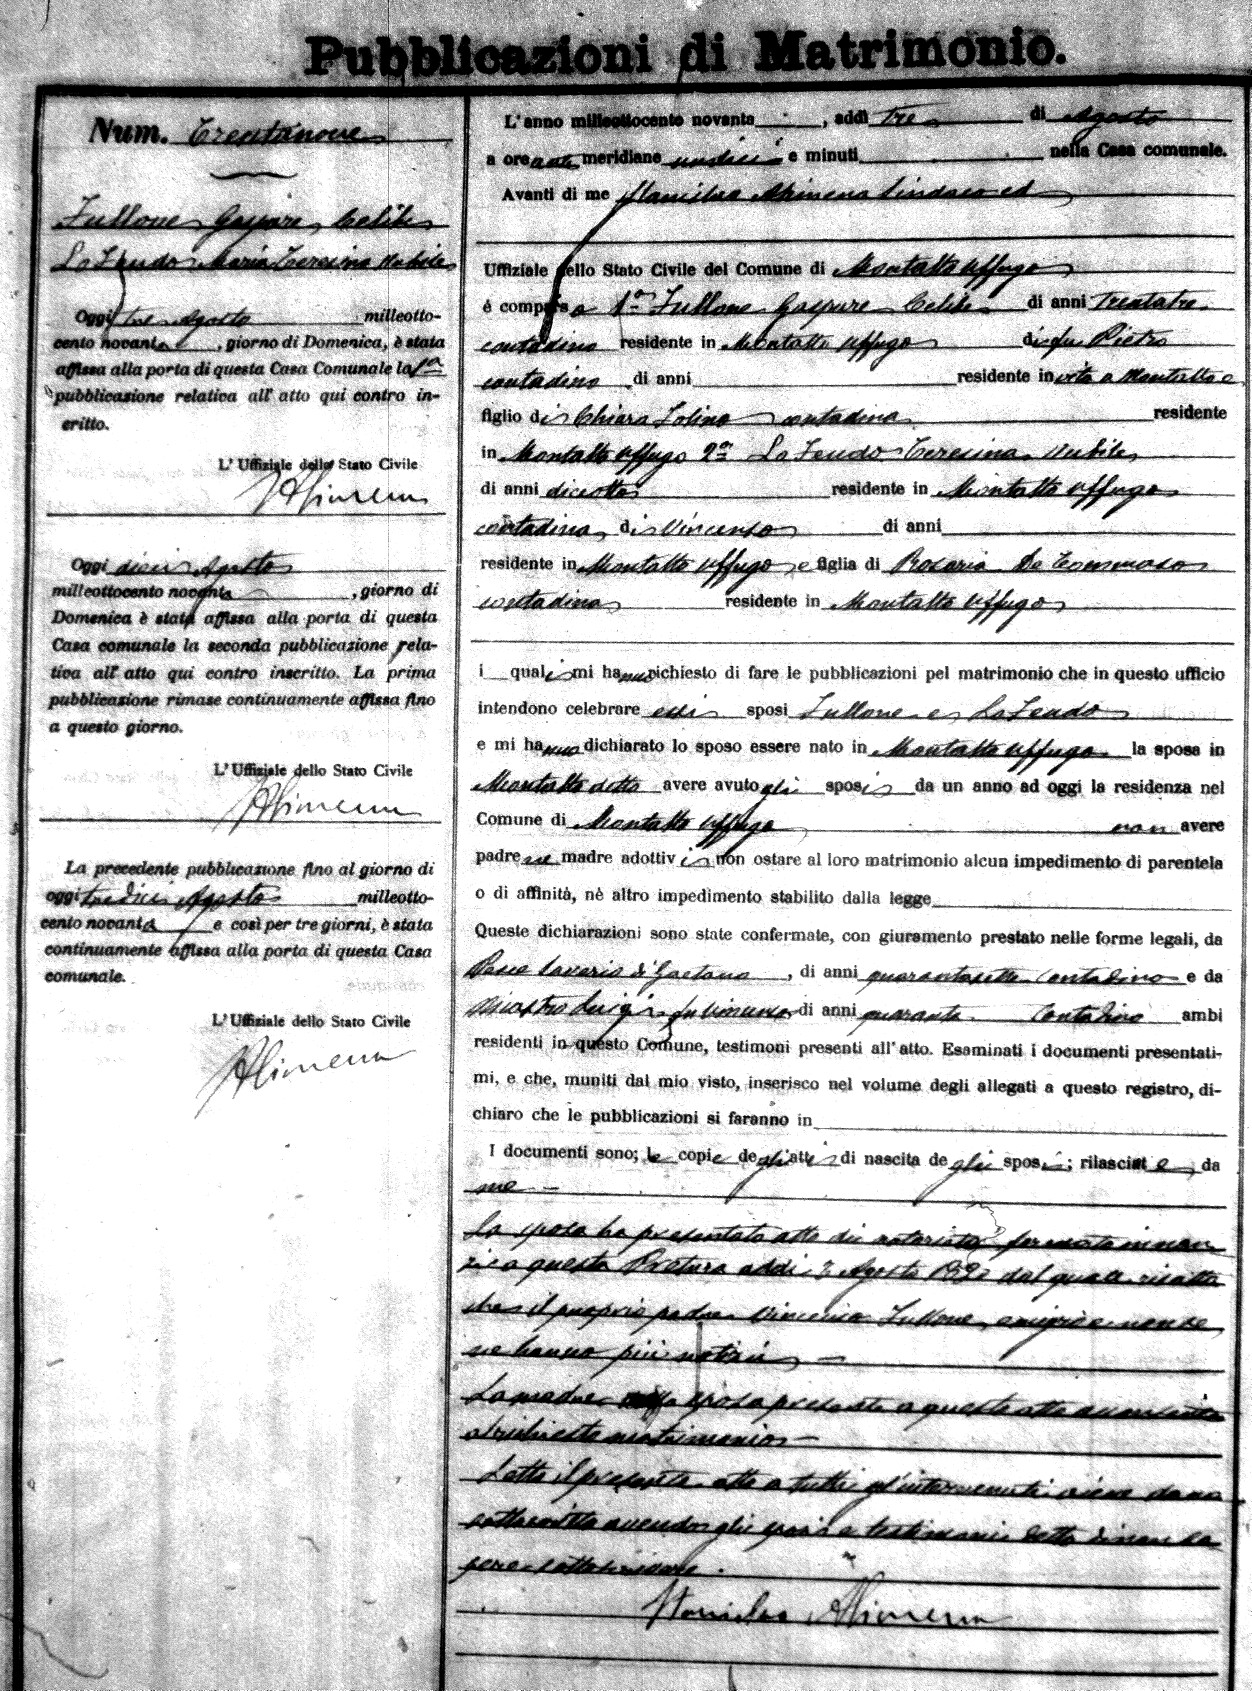 Pubblicazioni di Matrimonio.
Num. Trentanove
Fullone Gaspare, Celibe
Lo Feudo Maria Teresina Nubile
Oggi tre Agosto milleotto-
cento novanta, giorno di Domenica, è stata
affissa alla porta di questa Casa Comunale la 1ª
pubblicazione relativa all' atto qui contro in-
critto.
L' Uffiziale dello Stato Civile
SAlimena
Oggi dieci Agosto
milleottocento novanta, giorno di
Domenica è stata affissa alla porta di questa
Casa comunale la seconda pubblicazione rela-
tiva all' atto qui contro inscritto. La prima
pubblicazione rimase continuamente affissa fino
a questo giorno.
L' Uffiziale dello Stato Civile
SAlimena
La precedente pubblicazione fino al giorno di
oggi tredici Agosto milleotto-
cento novanta e così per tre giorni, è stata
continuamente affissa alla porta di questa Casa
comunale.
L' Uffiziale dello Stato Civile
SAlimena
L' anno milleottocento novanta, addì tre di Agosto
a ore ante meridiane undici e minuti nella Casa comunale.
Avanti di me Stanislao Alimena Sindaco ed
Uffiziale dello Stato Civile del Comune di Montalto Uffugo
è comparso a 1º Fullone Gaspare Celibe di anni trentatre
contadino residente in Montalto Uffugo di fu Pietro
contadino di anni residente in vita a Montalto e
figlio di Chiara Tolino contadina residente
in Montalto Uffugo 2º Lo Feudo Teresina Nubile
di anni diciotto residente in Montalto Uffugo
contadina di Vincenzo di anni
residente in Montalto Uffugo e figlia di Rosaria De Tommaso
contadina residente in Montalto Uffugo
i quali mi hanno richiesto di fare le pubblicazioni pel matrimonio che in questo ufficio
intendono celebrare essi sposi Fullone e Lo Feudo
e mi hanno dichiarato lo sposo essere nato in Montalto Uffugo la sposa in
Montalto detto avere avuto gli sposi da un anno ad oggi la residenza nel
Comune di Montalto Uffugo non avere
padre ne madre adottivi non ostare al loro matrimonio alcun impedimento di parentela
o di affinità, nè altro impedimento stabilito dalla legge
Queste dichiarazioni sono state confermate, con giuramento prestato nelle forme legali, da
Pesce Saverio di Gaetano, di anni quarantasette contadino e da
Luigi fu Vincenzo di anni quaranta Contadino ambi
residenti in questo Comune, testimoni presenti all' atto. Esaminati i documenti presentati-
mi, e che, muniti dal mio visto, inserisco nel volume degli allegati a questo registro, di-
chiaro che le pubblicazioni si faranno in
I documenti sono; le copie degli atti di nascita degli sposi; rilasciate da
me
La sposa ha presentato atto di notorietà formato innan
zi a questa Pretura addì 2 Agosto 1890 dal quale risulta
che il proprio padre Vincenzo Fullone, emigrò e non se
ne hanno più notizie
La madre della sposa presente a questo atto acconsente
al richiesto matrimonio
Letto il presente atto a tutti gl'intervenuti viene da me
sottoscritto avendo gli sposi e testimoni detto di non sa
pere sottoscrivere.
Stanislao Alimena